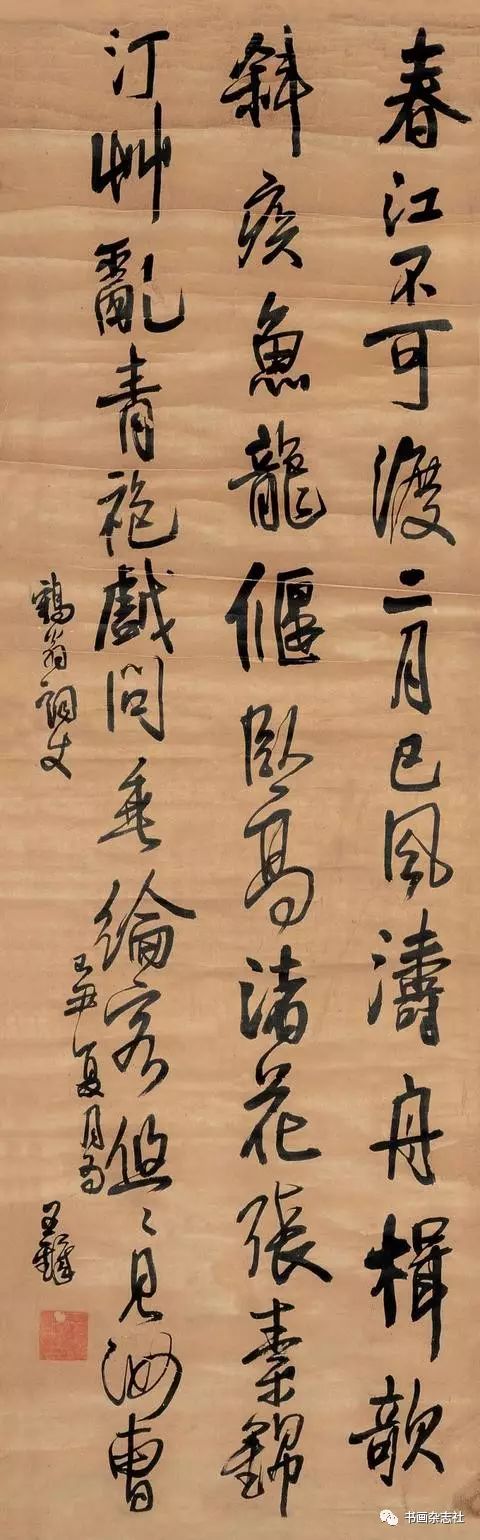 春江不可渡二月已風濤舟楫欹
斜疾魚龍偃臥高渚花張素錦
汀艸亂青袍戲問垂綸客悠〻見汝曹
丑夏月為
鶴翁詞丈
王鐸
书画杂志社